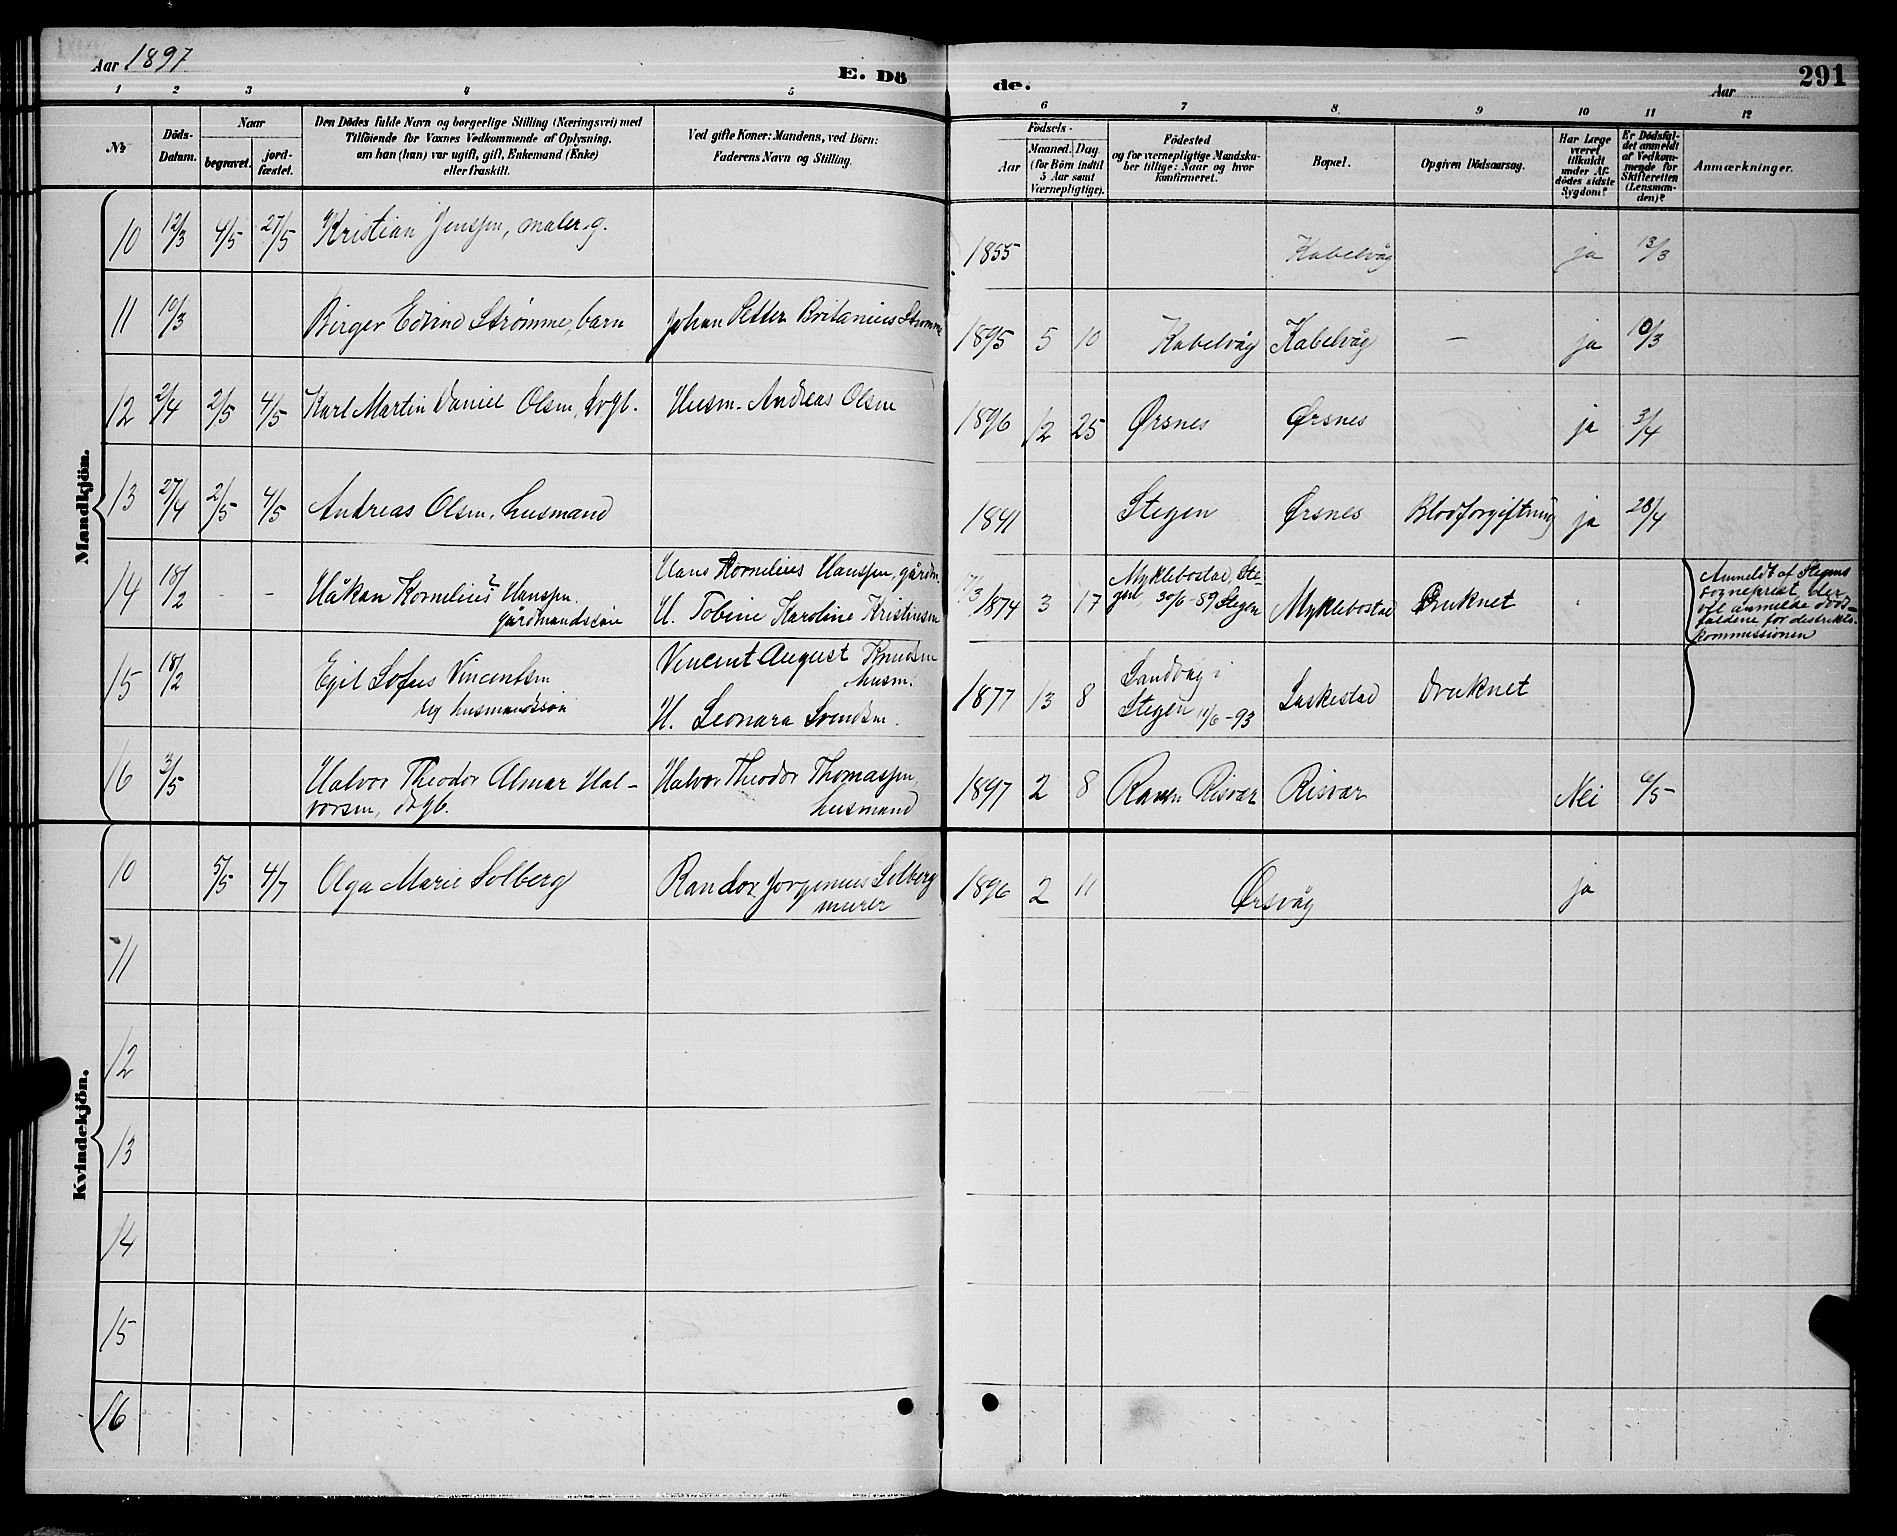 Aar 1897
E. Dö
de.
Aar
291
1 2 3 4 5 6 7 8. 9 10 11 12
№
Döds-
Datum.
Naar
begravet.
jord-
fæstet.
Den Dödes fulde Navn og borgerlige Stilling (Næringsvei) med
Tilföiende for Voxnes Vedkommende af Oplysning,
om han (hun) var ugift, gift, Enkemand (Enke)
eller fraskilt.
Ved gifte Koner: Mandens, ved Börn:
Faderens Navn og Stilling.
Födsels-
Aar
Maaned. Dag
(for Börn indtil
5 Aar samt
Værnepligtige).
Födested
og for værnepligtige Mandska-
ber tillige: Naar og hvor
konfirmeret.
Bopæl.
Opgiven Dödsaarsag.
Har Læge
været
tilkaldt
under Af-
dödes sidste
Sygdom?
Er Dödsfal-
det anmeldt
af Vedkom-
mende for
Skifteretten
(Lensman-
den)?
Anmærkninger.
Mandkjön.
10 12/3 4/5 27/5 Kristian Jenssen, maler. g. 1855 Kabelvåg ja 13/3
11 10/3 Birger Edvind Strømme, barn Johan Petter Britanius Strømme 1895 5 10 Kabelvåg Kabelvåg — ja 10/3
12 2/4 2/5 4/5 Karl Martin Daniel Olsen, dvgb. Husm. Andreas Olsen 1896 12 25 Ørsnes Ørsnes ja 3/4
13 27/4 2/5 4/5 Andreas Olsen, husmand 1841 Stegen Ørsnes Blodforgiftning ja 28/4
14 18/2 - - Håkan Kornelius Hanssen
gårdmandssøn
Hans Kornelius Hanssen, gårdm.
H. Tobine Karoline Kristensen
1874 3 17 Myklebostad, Ste-
gen, 30/6-89 Stegen Myklebostad Druknet
Anmeldt af Stegens
sogneprest, der
vil anmelde døds-
faldene for distrikts-
kommissionen
15 18/2 Egil Sofus Vincentsen
ug husmandssøn
Vincent August Knudsen
husm.
H. Leonara Svendsen.
1877 13 8 Sandvåg i
Stegen 11/6-93 Laskestad Druknet
16 3/5 Halvor Theodor Almar Hal-
vorsen, dvgb.
Halvor Theodor Thomassen
husmand
1897 2 8 Raven Risvær Risvær Nei 6/5
Kvindekjön.
10 5/5 4/7 Olga Marie Solberg Randor Jorgenius Solberg
murer
1896 2 11 Ørsvåg ja
11
12
13
14
15
16